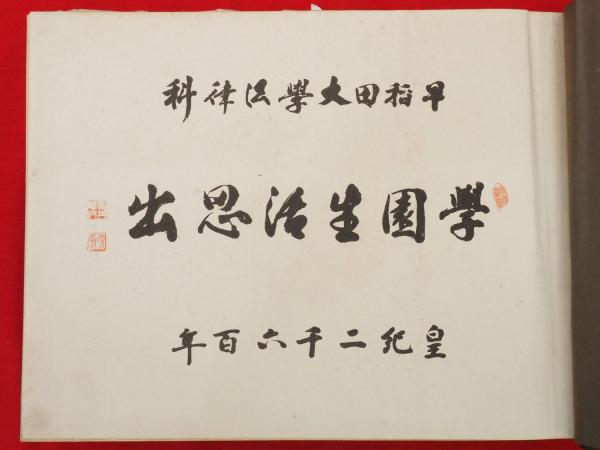 早稻田大學法律科
學園生活思出
皇紀二千六百年